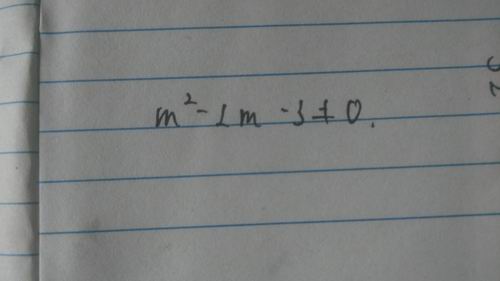 m² - 2m - 3 ≠ 0.